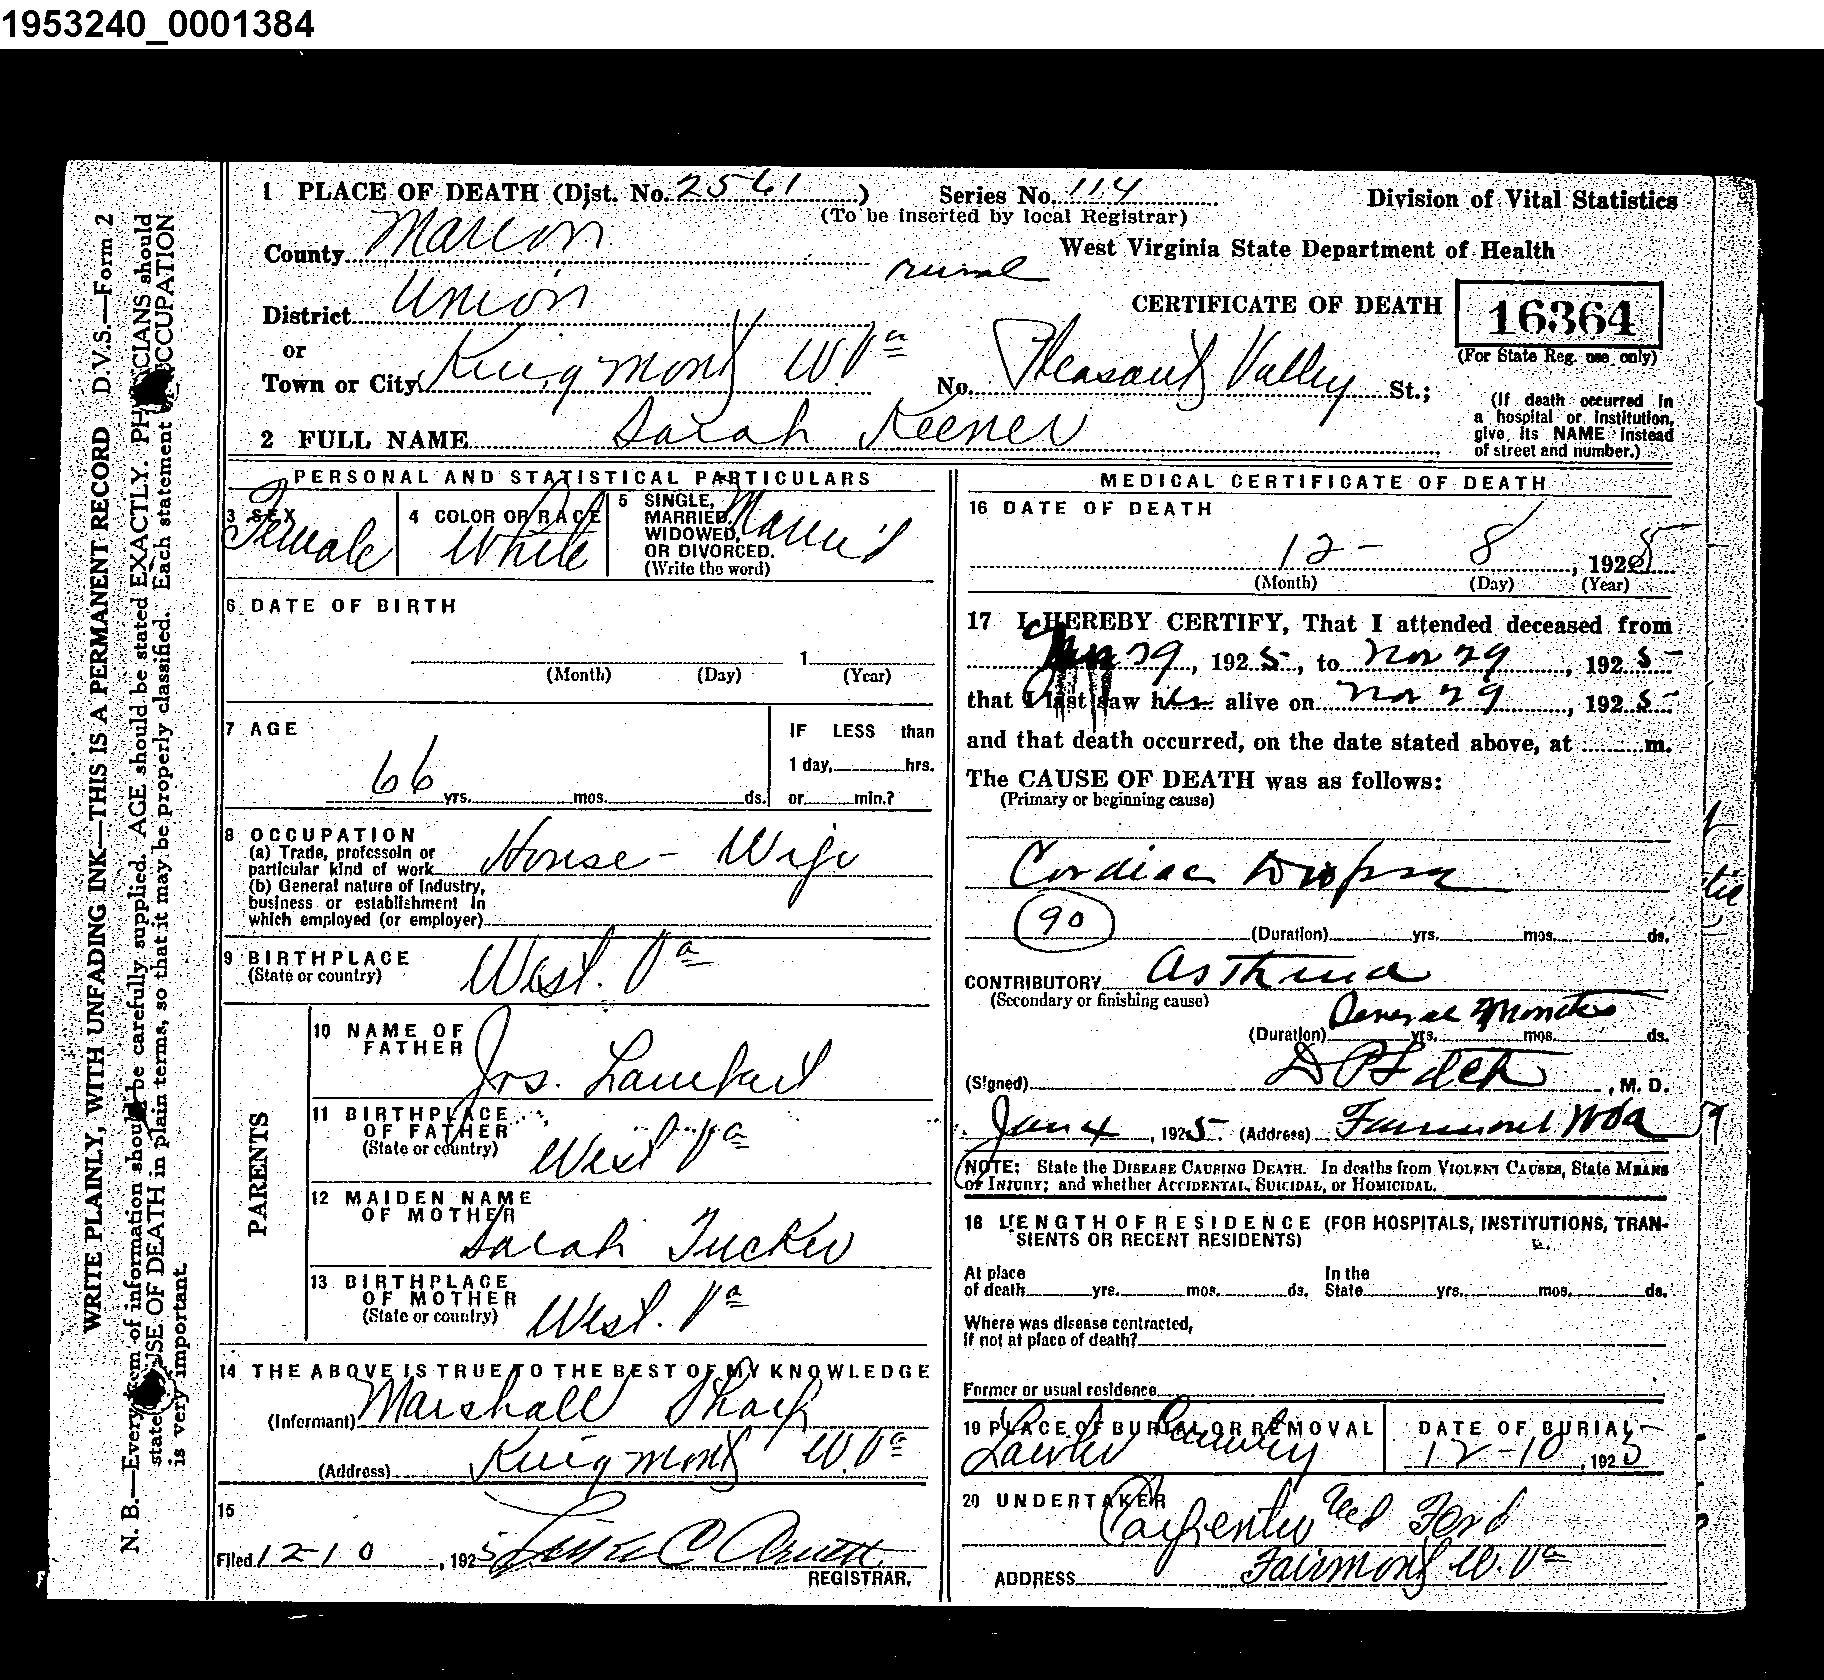 1953240_0001384
1 PLACE OF DEATH (Dist. No. 2561)
Series No. 114
(To be inserted by local Registrar)
Division of Vital Statistics
County Marion
West Virginia State Department of Health
rural
District Union
CERTIFICATE OF DEATH
16364
(For State Reg. use only)
or
Town or City Kingmont W.Va
No. Pleasant Valley St.;
(If death occurred in
a hospital or institution,
give its NAME instead
of street and number.)
2 FULL NAME Sarah Keener
PERSONAL AND STATISTICAL PARTICULARS
3 SEX
Female
4 COLOR OR RACE
White
5 SINGLE,
MARRIED,
WIDOWED,
OR DIVORCED.
(Write the word)
Marri'd
6 DATE OF BIRTH
1
(Month) (Day) (Year)
7 AGE
66 yrs. mos. ds.
IF LESS than
1 day, hrs.
or min.?
8 OCCUPATION
(a) Trade, professoin or
particular kind of work House-Wife
(b) General nature of Industry,
business or establishment in
which employed (or employer)
9 BIRTHPLACE
(State or country)
West. Va
PARENTS
10 NAME OF
FATHER
Jos.
11 BIRTHPLACE
OF FATHER
(State or country)
West Va
12 MAIDEN NAME
OF MOTHER
Sarah Tucker
13 BIRTHPLACE
OF MOTHER
(State or country)
West. Va
14 THE ABOVE IS TRUE TO THE BEST OF MY KNOWLEDGE
(Informant) Marshall
(Address) Kingmont W.Va
15
Filed 12-10, 1925
REGISTRAR.
MEDICAL CERTIFICATE OF DEATH
16 DATE OF DEATH
12- 8, 1925
(Month) (Day) (Year)
17 I HEREBY CERTIFY, That I attended deceased from
29, 1925, to Nov 29, 1925
that I last saw her alive on Nov 29, 1925
and that death occurred, on the date stated above, at m.
The CAUSE OF DEATH was as follows:
(Primary or beginning cause)
Cardiac Dropsy
90
(Duration) yrs. mos. ds.
CONTRIBUTORY Asthma
(Secondary or finishing cause)
Several Months
(Duration) yrs. mos. ds.
(Signed) , M. D.
Jan 4, 1925. (Address) Fairmont WVa
NOTE: State the DISEASE CAUSING DEATH. In deaths from VIOLENT CAUSES, State MEANS
OF INJURY; and whether ACCIDENTAL, SUICIDAL, or HOMICIDAL.
18 LENGTH OF RESIDENCE (FOR HOSPITALS, INSTITUTIONS, TRAN-
SIENTS OR RECENT RESIDENTS)
At place
of death yrs. mos. ds.
In the
State yrs. mos. ds.
Where was disease contracted,
if not at place of death?
Former or usual residence
19 PLACE OF BURIAL OR REMOVAL
DATE OF BURIAL
12-10, 1925
20 UNDERTAKER
Carpenter and Ford
ADDRESS Fairmont W.Va
WRITE PLAINLY, WITH UNFADING INK—THIS IS A PERMANENT RECORD D.V.S.—Form 2
N. B.—Every item of information should be carefully supplied. AGE should be stated EXACTLY. PHYSICIANS should
state CAUSE OF DEATH in plain terms, so that it may be properly classified. Each statement OCCUPATION
is very important.